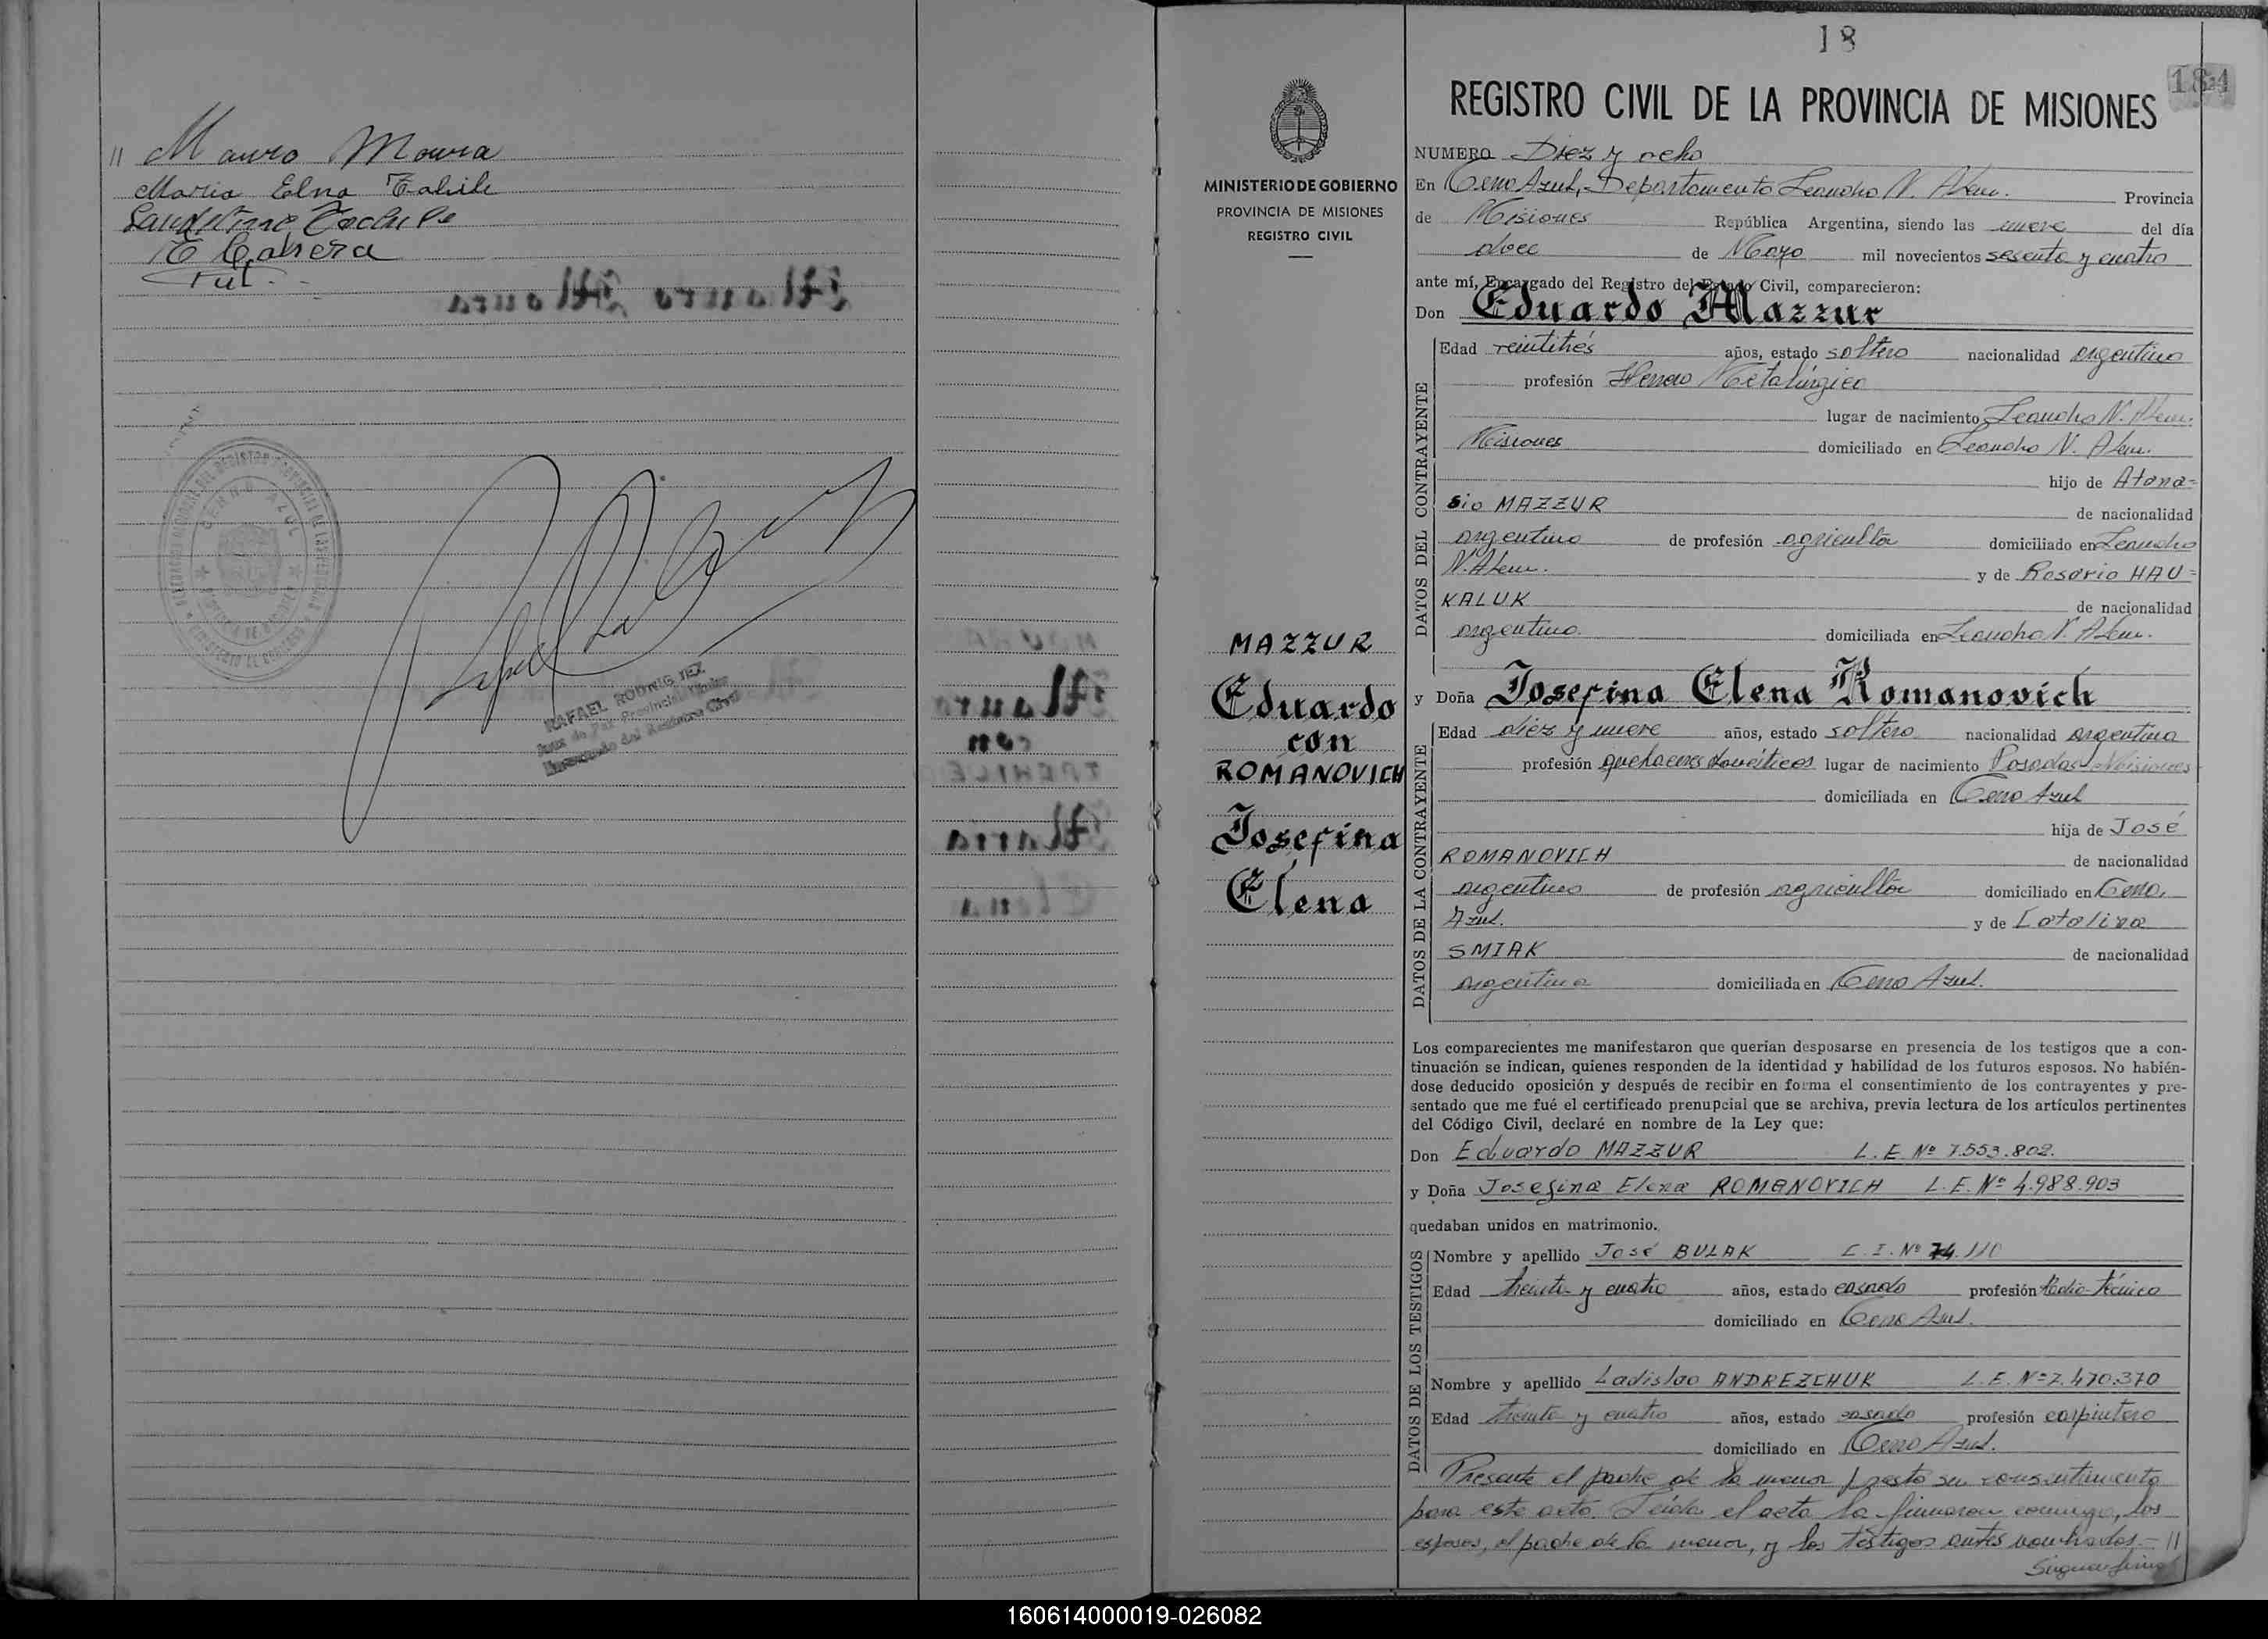 // Mauro Moura
Maria Elna
E Cabrera
RAFAEL RODRIGUEZ
Juez de Paz Provincial
Encargado del Registro Civil
CERRO AZUL
18
184
REGISTRO CIVIL DE LA PROVINCIA DE MISIONES
MINISTERIO DE GOBIERNO
PROVINCIA DE MISIONES
REGISTRO CIVIL
MAZZUR
Eduardo
con
ROMANOVICH
Josefina
Elena
NUMERO Diez y ocho
En Cerro Azul, Departamento Leandro N. Alem. Provincia
de Misiones República Argentina, siendo las nueve del día
doce de Mayo mil novecientos sesenta y cuatro
ante mí, Encargado del Registro del Estado Civil, comparecieron:
Don Eduardo Mazzur
DATOS DEL CONTRAYENTE
Edad veintitrés años, estado soltero nacionalidad argentino
profesión Herrero Metalúrgico
lugar de nacimiento Leandro N. Alem.
Misiones domiciliado en Leandro N. Alem.
hijo de Atana=
sio MAZZUR de nacionalidad
argentino de profesión agricultor domiciliado en Leandro
N. Alem. y de Rosario HAU=
KALUK de nacionalidad
argentina domiciliada en Leandro N. Alem.
y Doña Josefina Elena Romanovich
DATOS DE LA CONTRAYENTE
Edad diez y nueve años, estado soltera nacionalidad argentina
profesión quehaceres domésticos lugar de nacimiento Posadas Misiones
domiciliada en Cerro Azul
hija de José
ROMANOVICH de nacionalidad
argentino de profesión agricultor domiciliado en Cerro
Azul. y de Catalina
SMIAK de nacionalidad
argentina domiciliada en Cerro Azul.
Los comparecientes me manifestaron que querían desposarse en presencia de los testigos que a con-
tinuación se indican, quienes responden de la identidad y habilidad de los futuros esposos. No habién-
dose deducido oposición y después de recibir en forma el consentimiento de los contrayentes y pre-
sentado que me fué el certificado prenupcial que se archiva, previa lectura de los artículos pertinentes
del Código Civil, declaré en nombre de la Ley que:
Don Eduardo MAZZUR L. E. Nº 7.553.802.
y Doña Josefina Elena ROMANOVICH L. E. Nº 4.988.903
quedaban unidos en matrimonio.
DATOS DE LOS TESTIGOS
Nombre y apellido José BULAK C. I. Nº 74.110
Edad treinta y cuatro años, estado casado profesión Radio-técnico
domiciliado en Cerro Azul.
Nombre y apellido Ladislao ANDREZCHUK L. E. Nº 7.470.370
Edad treinta y cuatro años, estado casado profesión carpintero
domiciliado en Cerro Azul.
Presente el padre de la menor presta su consentimiento
para este acto. Leída el acta la firmaron conmigo, los
esposos, el padre de la menor, y los testigos antes nombrados.- //
160614000019-026082